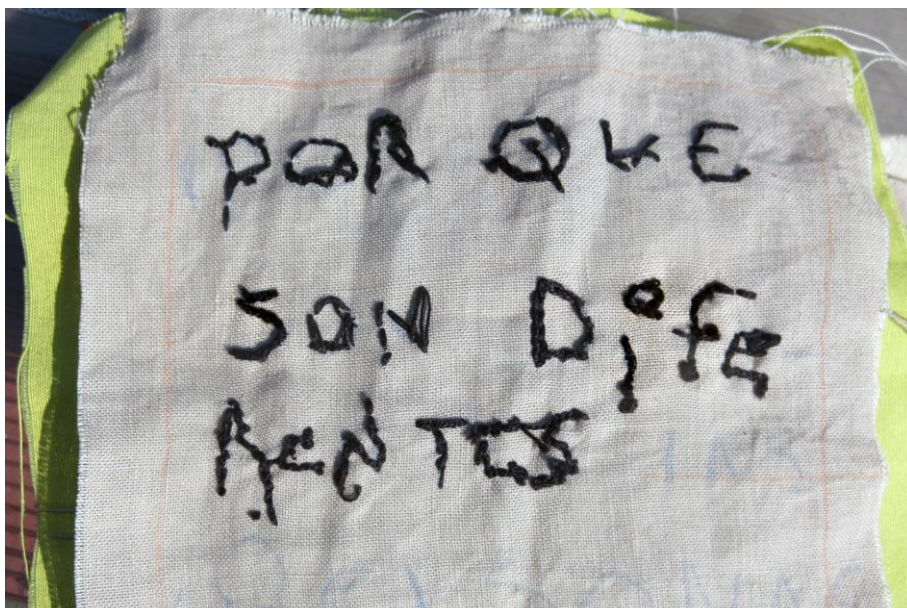 POR QUE
SON DiFE
RENTES